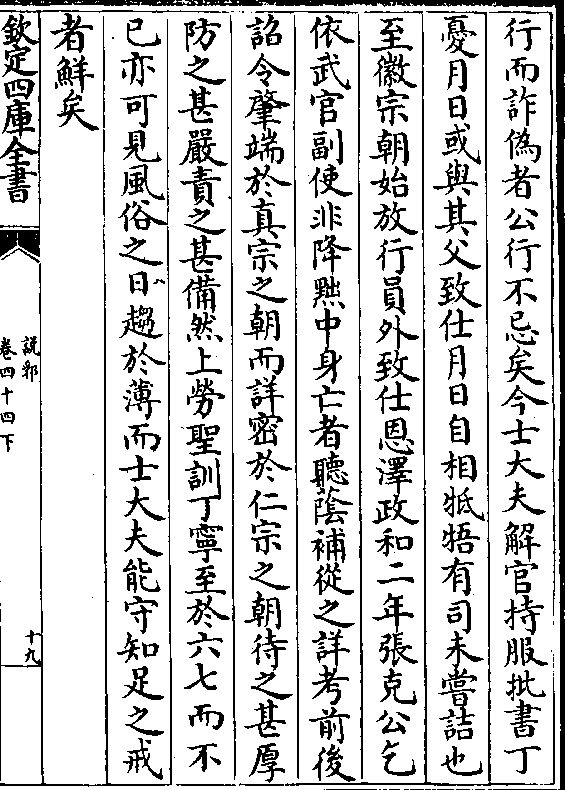 行而詐偽者公行不忌矣今士大夫解官持服批書丁
憂月日或與其父致仕月日自相牴牾有司未嘗詰也
至徽宗朝始放行員外致仕恩澤政和二年張克公乞
依武官副使非降黜中身亡者聽蔭補從之詳考前後
詔令肇端於真宗之朝而詳密於仁宗之朝待之甚厚
防之甚嚴責之甚備然上勞聖訓丁寧至於六七而不
已亦可見風俗之日趨於薄而士大夫能守知足之戒
者鮮矣
欽定四庫全書
說郛
卷四十四下
十九